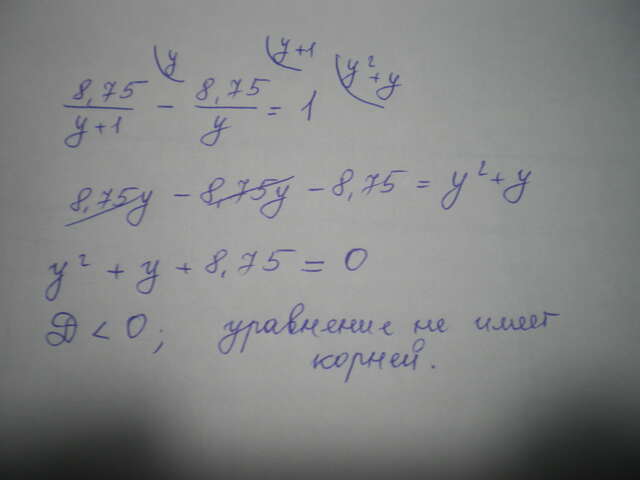 y y+1 y²+y
8,75/y+1 - 8,75/y = 1
8,75y - 8,75y - 8,75 = y²+y
y² + y + 8,75 = 0
D < 0; уравнение не имеет
корней.